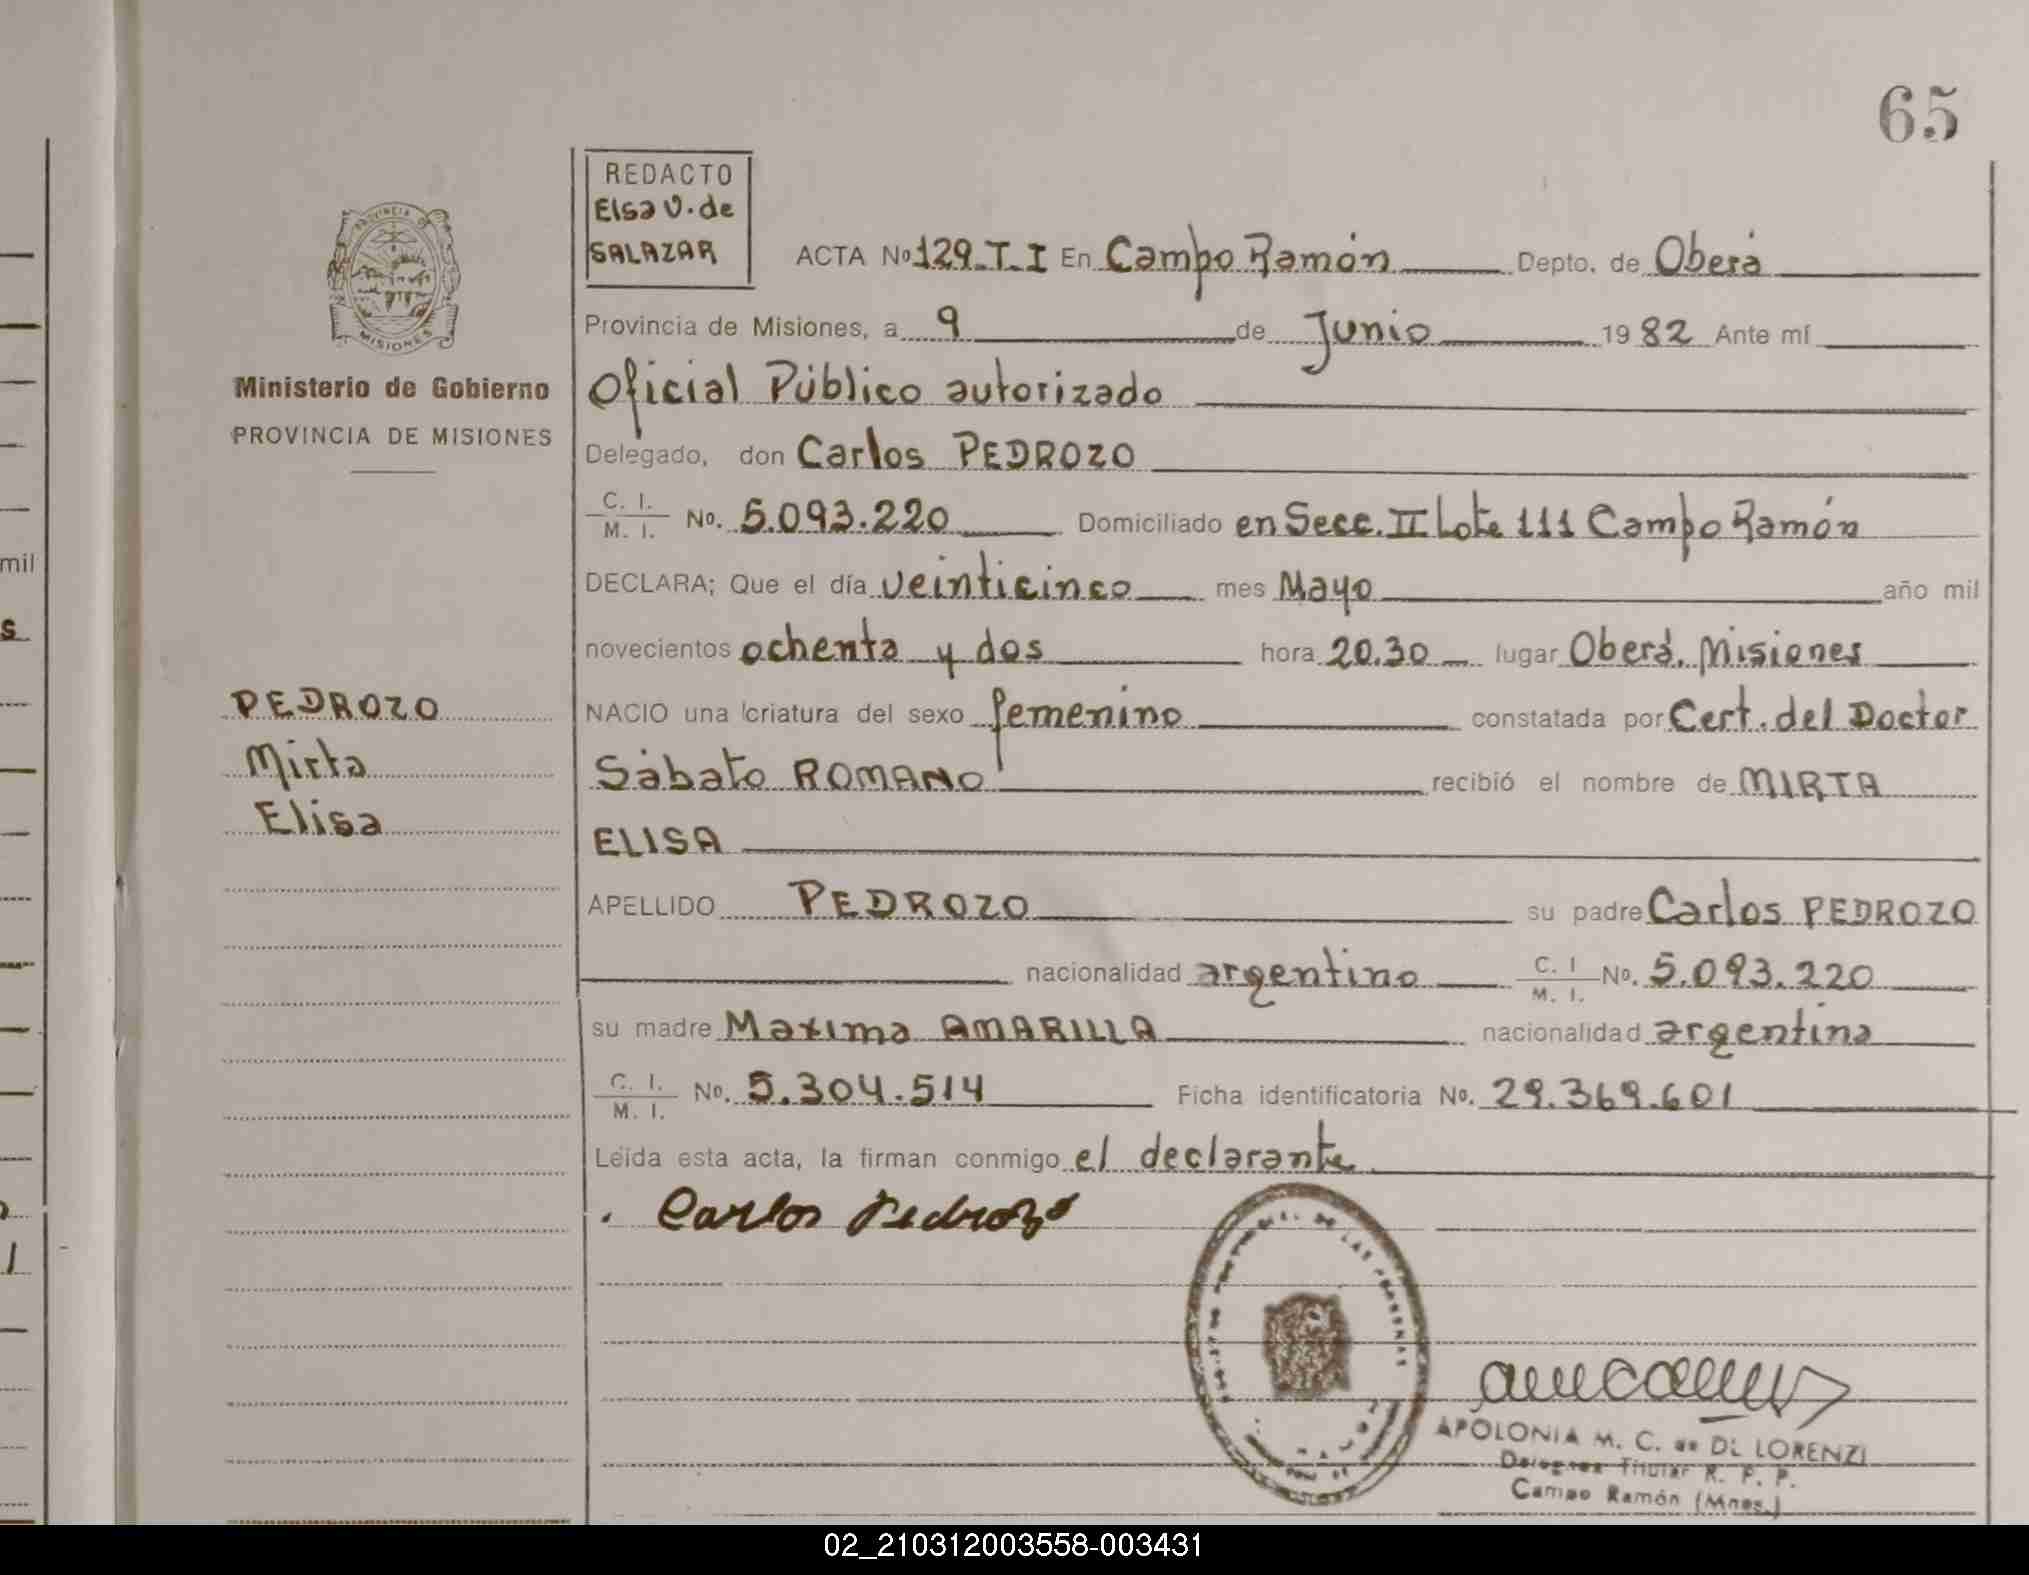 65
REDACTO
Elsa V. de
SALAZAR
ACTA Nº 129.T.I En Campo Ramón Depto. de Oberá
PROVINCIA DE
MISIONES
Provincia de Misiones, a 9 de Junio 1982 Ante mí
Ministerio de Gobierno
PROVINCIA DE MISIONES
Oficial Público autorizado
Delegado, don Carlos PEDROZO
C. I.
M. I. No. 5.093.220 Domiciliado en Secc. II Lote 111 Campo Ramón
mil
DECLARA; Que el día veinticinco mes Mayo año mil
s
novecientos ochenta y dos hora 20.30 lugar Oberá. Misiones
PEDROZO
Mirta
Elisa
NACIO una criatura del sexo femenino constatada por Cert. del Doctor
Sábato ROMANO recibió el nombre de MIRTA
ELISA
APELLIDO PEDROZO su padre Carlos PEDROZO
nacionalidad argentino C. I
M. I. No. 5.093.220
su madre Maxima AMARILLA nacionalidad argentina
C. I.
M. I. No. 5.304.514 Ficha identificatoria No. 29.369.601
Leída esta acta, la firman conmigo el declarante
Carlos Pedrozo
DE LAS PERSONAS
APOLONIA M. C. de DE LORENZI
Delegada Titular R. P. P.
Campo Ramón (Mnes.)
02_210312003558-003431